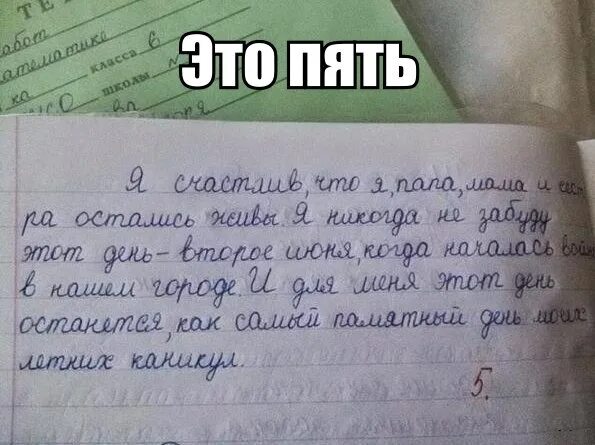 Это пять
ТЕ
работ
математике
ка класса 6
школы
Я счастлив, что я, папа, мама и сест
ра остались живы. Я никогда не забуду
этот день – второе июня, когда началась война
в нашем городе. И для меня этот день
останется, как самый памятный день моих
летних каникул.
5.